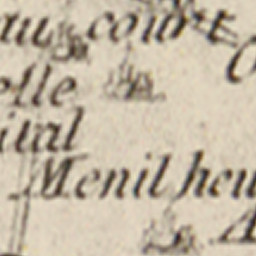 au court
elle
ital
Menil heu